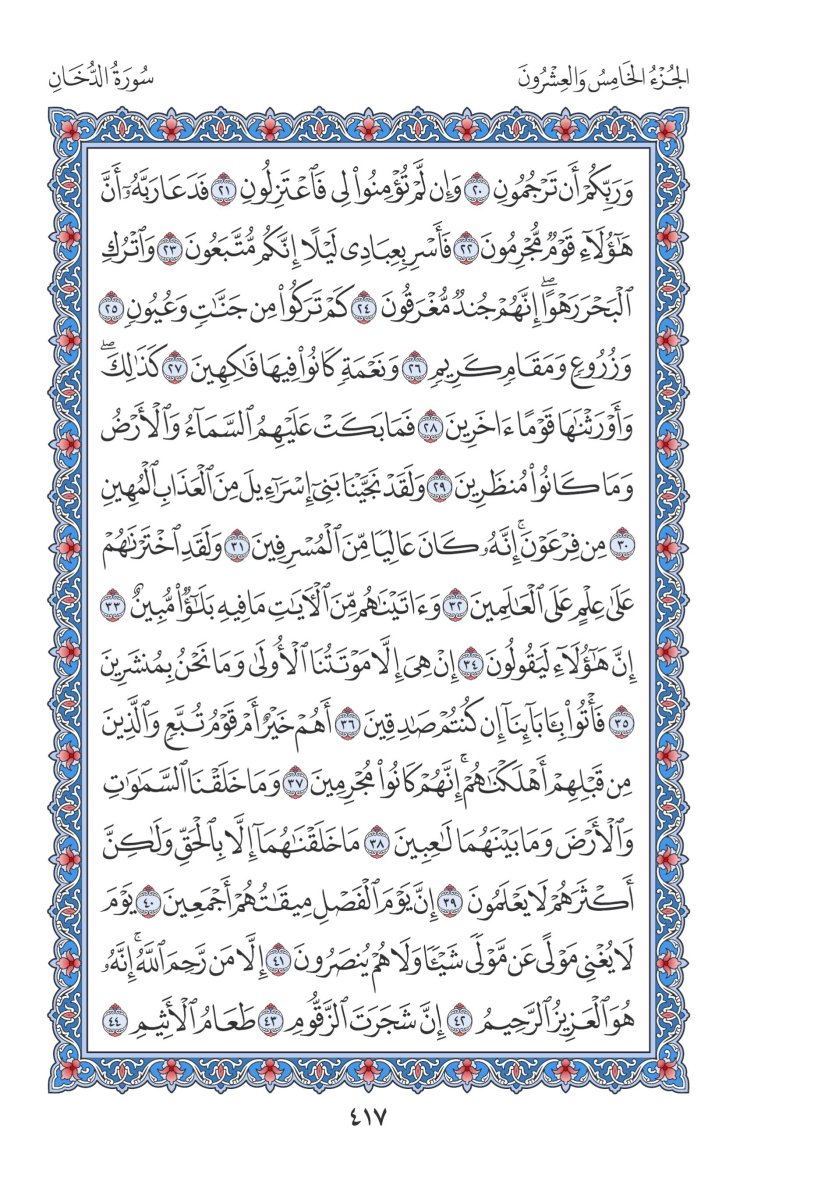 الجُزْءُ الخَامِسُ وَالعِشْرُونَ
سُورَةُ الدُّخَانِ
وَرَبِّكُمْ أَن تَرْجُمُونِ ٢٠ وَإِن لَّمْ تُؤْمِنُوا۟ لِى فَٱعْتَزِلُونِ ٢١ فَدَعَا رَبَّهُۥٓ أَنَّ
هَـٰٓؤُلَآءِ قَوْمٌ مُّجْرِمُونَ ٢٢ فَأَسْرِ بِعِبَادِى لَيْلًا إِنَّكُم مُّتَّبَعُونَ ٢٣ وَٱتْرُكِ
ٱلْبَحْرَ رَهْوًا ۖ إِنَّهُمْ جُندٌ مُّغْرَقُونَ ٢٤ كَمْ تَرَكُوا۟ مِن جَنَّـٰتٍ وَعُيُونٍ ٢٥
وَزُرُوعٍ وَمَقَامٍ كَرِيمٍ ٢٦ وَنَعْمَةٍ كَانُوا۟ فِيهَا فَـٰكِهِينَ ٢٧ كَذَٰلِكَ ۖ
وَأَوْرَثْنَـٰهَا قَوْمًا ءَاخَرِينَ ٢٨ فَمَا بَكَتْ عَلَيْهِمُ ٱلسَّمَآءُ وَٱلْأَرْضُ
وَمَا كَانُوا۟ مُنظَرِينَ ٢٩ وَلَقَدْ نَجَّيْنَا بَنِىٓ إِسْرَٰٓءِيلَ مِنَ ٱلْعَذَابِ ٱلْمُهِينِ
٣٠ مِن فِرْعَوْنَ ۚ إِنَّهُۥ كَانَ عَالِيًا مِّنَ ٱلْمُسْرِفِينَ ٣١ وَلَقَدِ ٱخْتَرْنَـٰهُمْ
عَلَىٰ عِلْمٍ عَلَى ٱلْعَـٰلَمِينَ ٣٢ وَءَاتَيْنَـٰهُم مِّنَ ٱلْـَٔايَـٰتِ مَا فِيهِ بَلَـٰٓؤٌا۟ مُّبِينٌ ٣٣
إِنَّ هَـٰٓؤُلَآءِ لَيَقُولُونَ ٣٤ إِنْ هِىَ إِلَّا مَوْتَتُنَا ٱلْأُولَىٰ وَمَا نَحْنُ بِمُنشَرِينَ
٣٥ فَأْتُوا۟ بِـَٔابَآئِنَآ إِن كُنتُمْ صَـٰدِقِينَ ٣٦ أَهُمْ خَيْرٌ أَمْ قَوْمُ تُبَّعٍ وَٱلَّذِينَ
مِن قَبْلِهِمْ أَهْلَكْنَـٰهُمْ ۚ إِنَّهُمْ كَانُوا۟ مُجْرِمِينَ ٣٧ وَمَا خَلَقْنَا ٱلسَّمَـٰوَٰتِ
وَٱلْأَرْضَ وَمَا بَيْنَهُمَا لَـٰعِبِينَ ٣٨ مَا خَلَقْنَـٰهُمَآ إِلَّا بِٱلْحَقِّ وَلَـٰكِنَّ
أَكْثَرَهُمْ لَا يَعْلَمُونَ ٣٩ إِنَّ يَوْمَ ٱلْفَصْلِ مِيقَـٰتُهُمْ أَجْمَعِينَ ٤٠ يَوْمَ
لَا يُغْنِى مَوْلًى عَن مَّوْلًى شَيْـًٔا وَلَا هُمْ يُنصَرُونَ ٤١ إِلَّا مَن رَّحِمَ ٱللَّهُ ۚ إِنَّهُۥ
هُوَ ٱلْعَزِيزُ ٱلرَّحِيمُ ٤٢ إِنَّ شَجَرَتَ ٱلزَّقُّومِ ٤٣ طَعَامُ ٱلْأَثِيمِ ٤٤
٤١٧